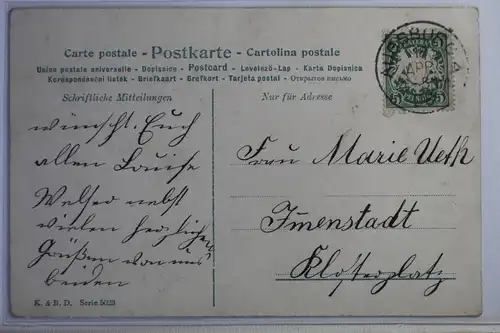 Carte postale - Postkarte - Cartolina postale
Union postale universelle - Dopisnice - Postcard - Levelező-Lap - Karta Dopisnica
Korespondenční listek - Briefkaart - Brefkort - Tarjeta postal - Открытое письмо
Schriftliche Mitteilungen
wünscht Euch
allen Louise
Welser nebst
vielen herzlichen
Grüßen von uns
beiden
K. & B. D. Serie 5023
Nur für Adresse
AUGSBURG
APR
5
5
Frau Marie Ueth
Immenstadt
Klosterplatz